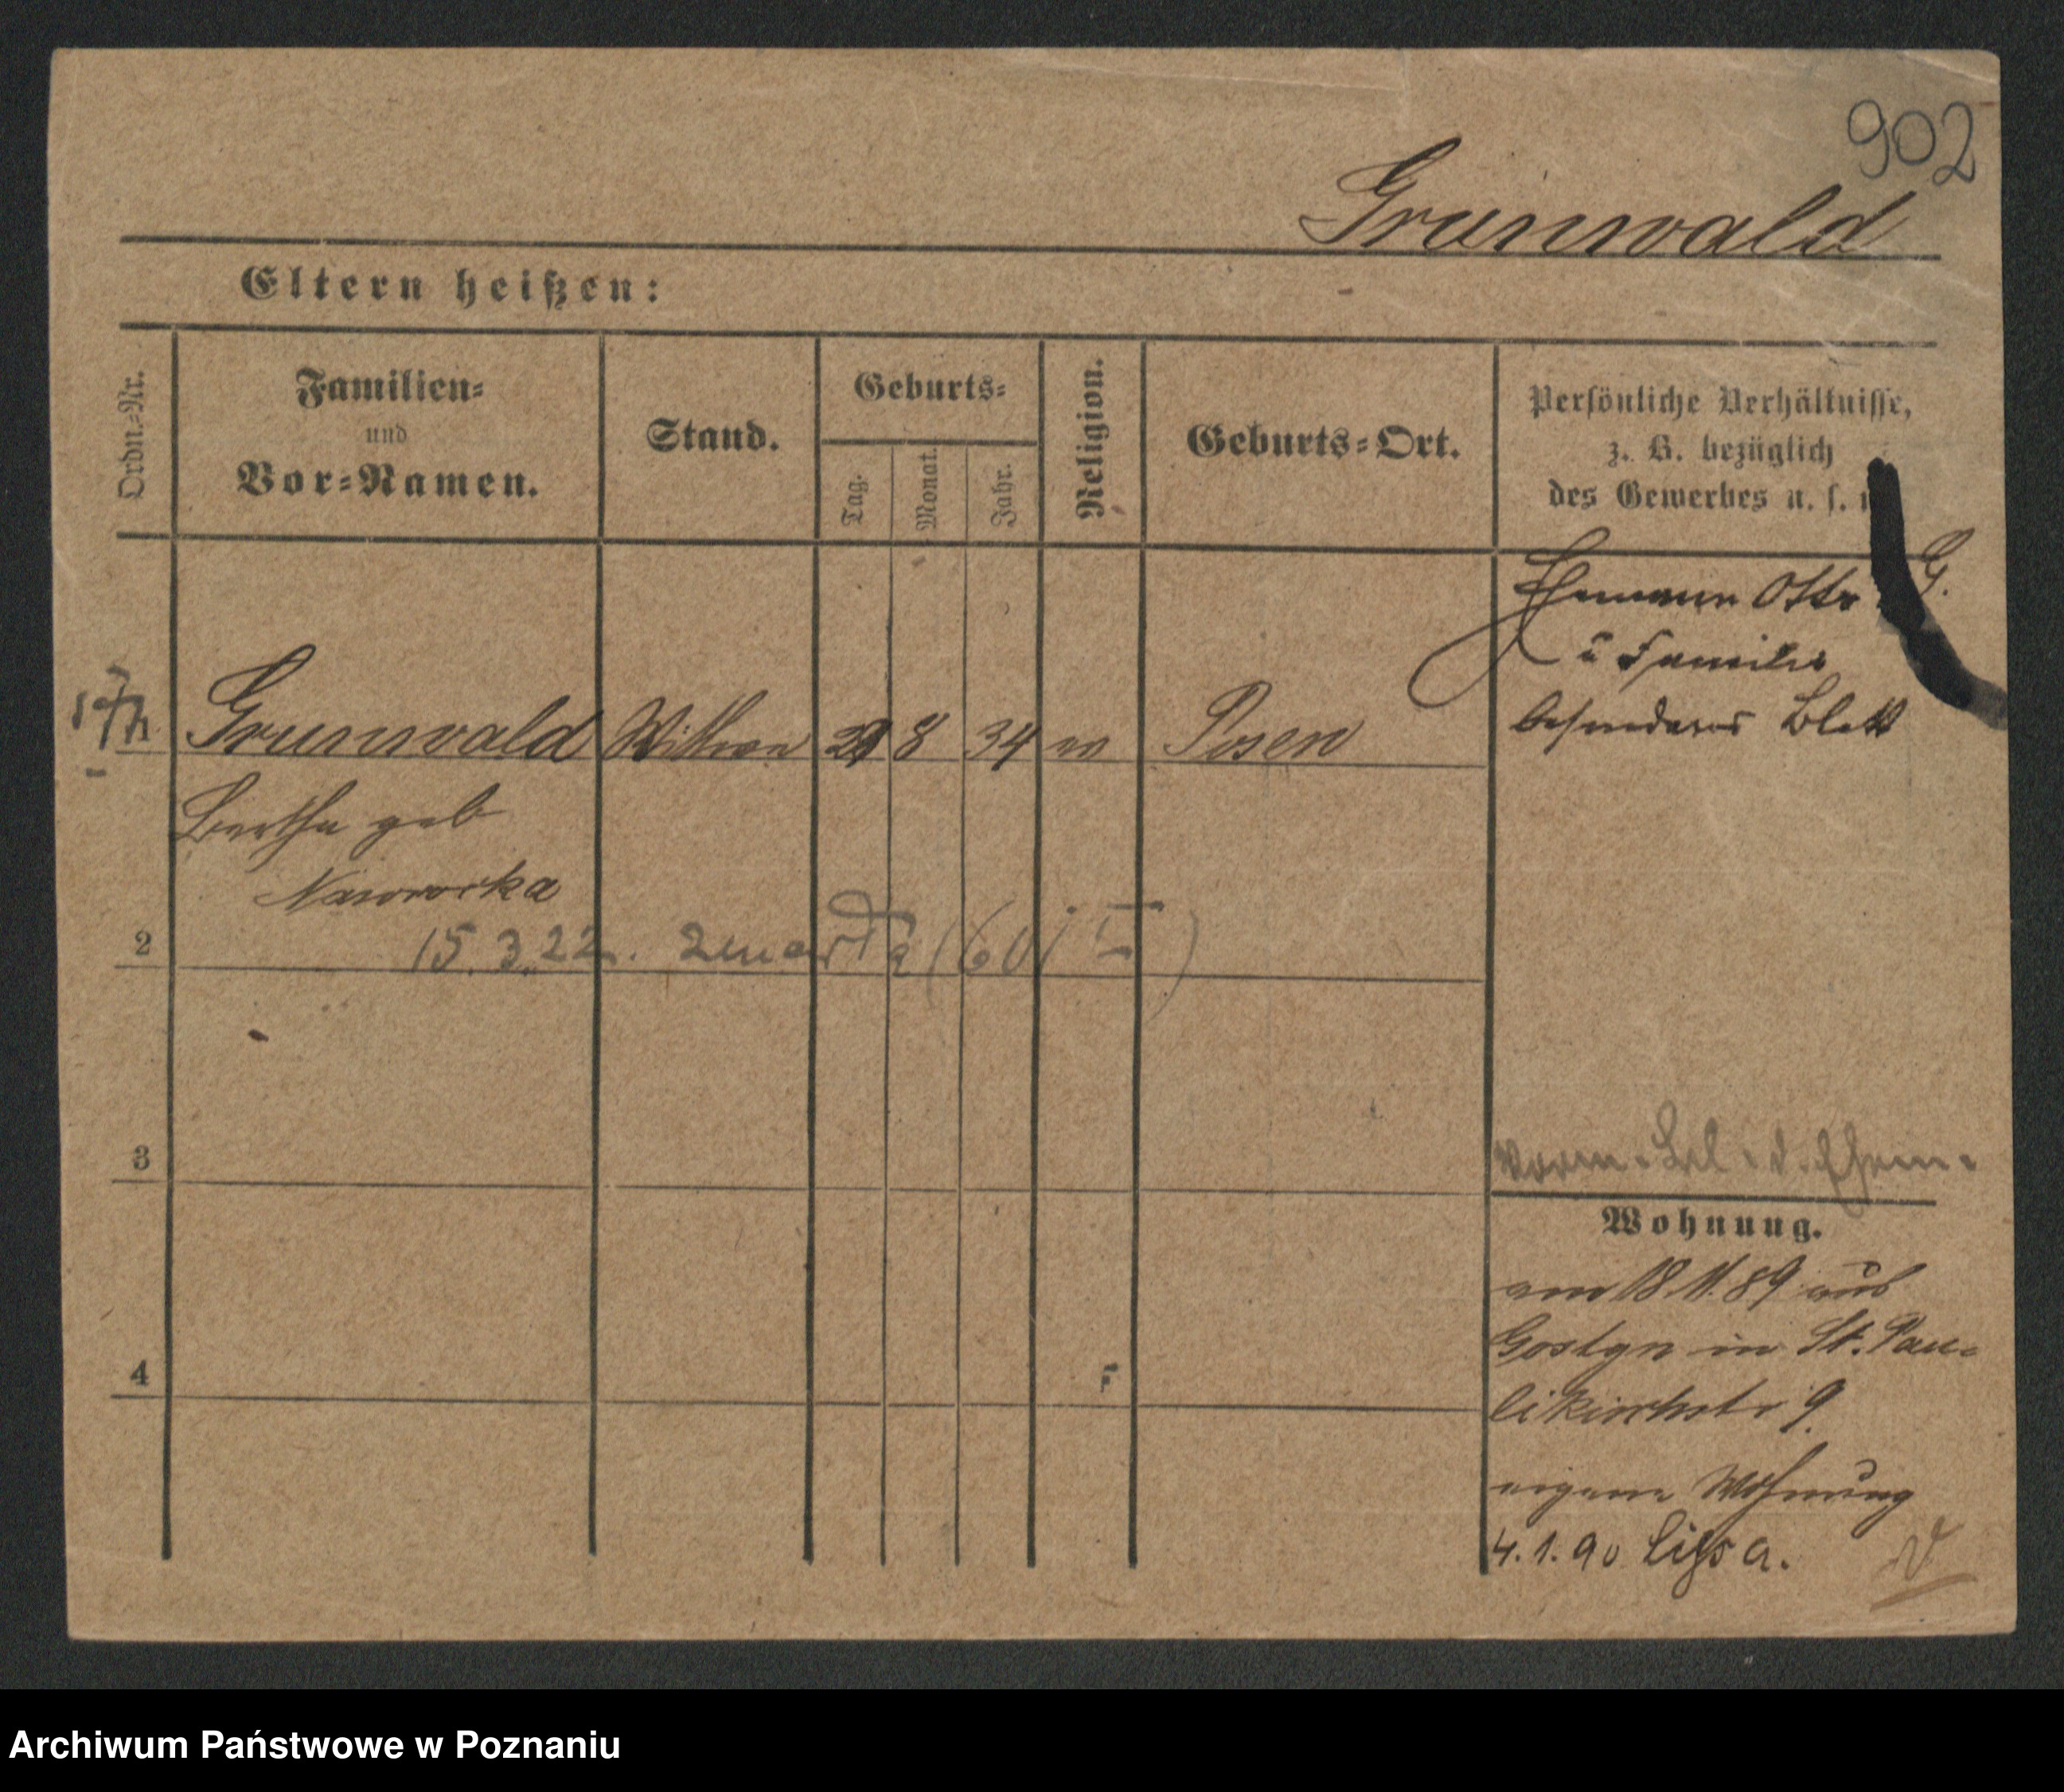 902
Grunwald
Eltern heißen:
Ordn.-Nr.
Familien-
und
Vor-Namen.
Stand.
Geburts-
Tag.
Monat.
Jahr.
Religion.
Geburts-Ort.
Persönliche Verhältnisse,
z. B. bezüglich
des Gewerbes u. s.
Ehemann Otto G.
u Familie
besonderes Blatt
Grunwald Wittwe 8 34 Posen
Bertha geb
15.3.22. zmarła
2
3
4
Wohnung.
am 18 11. 89 aus
Gostyn in St. Pau-
likirchstr 9
eigene Wohnung
4.1.90 Lissa.
Archiwum Państwowe w Poznaniu